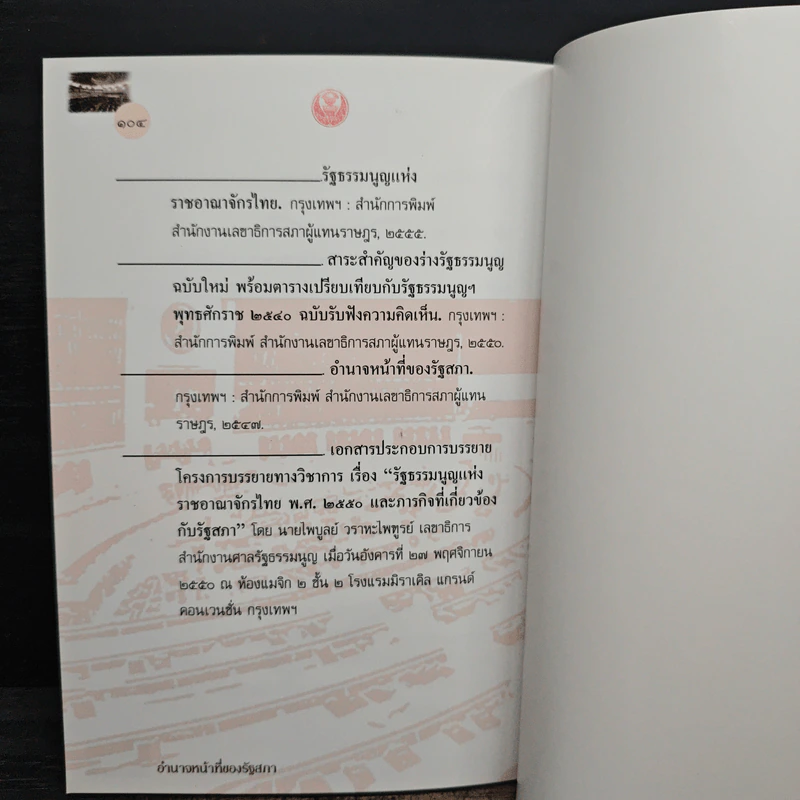 ๑๐๔
____________________รัฐธรรมนูญแห่ง
ราชอาณาจักรไทย. กรุงเทพฯ : สำนักการพิมพ์
สำนักงานเลขาธิการสภาผู้แทนราษฎร, ๒๕๕๕.
____________________. สาระสำคัญของร่างรัฐธรรมนูญ
ฉบับใหม่ พร้อมตารางเปรียบเทียบกับรัฐธรรมนูญฯ
พุทธศักราช ๒๕๔๐ ฉบับรับฟังความคิดเห็น. กรุงเทพฯ :
สำนักการพิมพ์ สำนักงานเลขาธิการสภาผู้แทนราษฎร, ๒๕๕๐.
____________________. อำนาจหน้าที่ของรัฐสภา.
กรุงเทพฯ : สำนักการพิมพ์ สำนักงานเลขาธิการสภาผู้แทน
ราษฎร, ๒๕๔๗.
____________________. เอกสารประกอบการบรรยาย
โครงการบรรยายทางวิชาการ เรื่อง “รัฐธรรมนูญแห่ง
ราชอาณาจักรไทย พ.ศ. ๒๕๕๐ และภารกิจที่เกี่ยวข้อง
กับรัฐสภา” โดย นายไพบูลย์ วราหะไพฑูรย์ เลขาธิการ
สำนักงานศาลรัฐธรรมนูญ เมื่อวันอังคารที่ ๒๗ พฤศจิกายน
๒๕๕๐ ณ ห้องแมจิก ๒ ชั้น ๒ โรงแรมมิราเคิล แกรนด์
คอนเวนชั่น กรุงเทพฯ
อำนาจหน้าที่ของรัฐสภา